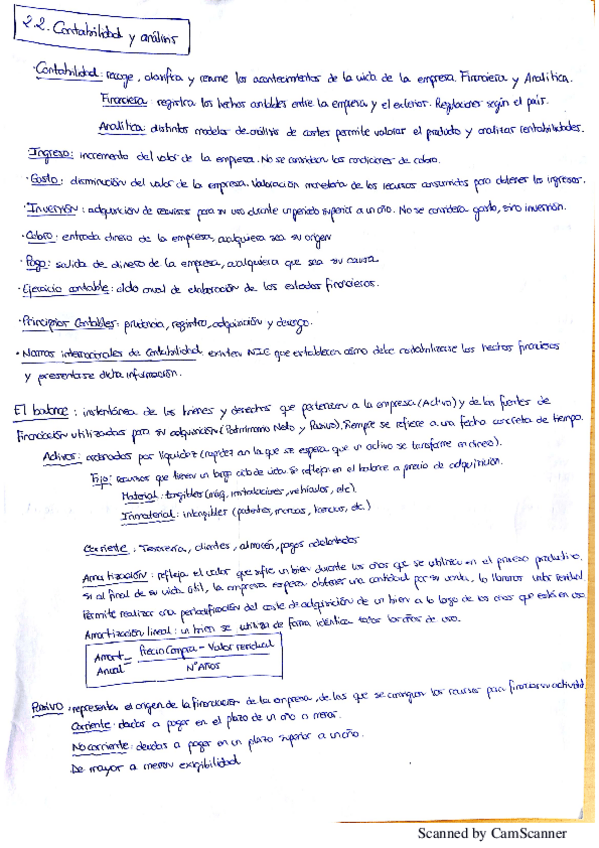 2.2. Contabilidad y análisis
· Contabilidad: recoge, clasifica y resume los acontecimientos de la vida de la empresa. Financiera y Analítica.
Financiera: registra los hechos contables entre la empresa y el exterior. Regulaciones según el país.
Analítica: distintos modelos de análisis de costes permite valorar el producto y analizar rentabilidades.
Ingreso: incremento del valor de la empresa. No se consideran las condiciones de cobro.
· Gasto: disminución del valor de la empresa. Valoración monetaria de los recursos consumidos para obtener los ingresos.
· Inversión: adquisición de recursos para su uso durante un periodo superior a un año. No se considera gasto, sino inversión.
· Cobro: entrada dinero de la empresa, cualquiera sea su origen
· Pago: salida de dinero de la empresa, cualquiera que sea su causa
· Ejercicio contable: ciclo anual de elaboración de los estados financieros.
· Principios Contables: prudencia, registro, adquisición y devengo.
· Normas internacionales de Contabilidad: existen NIC que establecen cómo debe contabilizarse los hechos financieros
y presentarse dicha información.
El balance: instantánea de los bienes y derechos que pertenecen a la empresa (Activo) y de las fuentes de
Financiación utilizadas para su adquisición (Patrimonio Neto y Pasivo). Siempre se refiere a una fecha concreta de tiempo.
Activos: ordenados por liquidez (rapidez con la que se espera que un activo se transforme en dinero).
Fijo: recursos que tienen un largo ciclo de vida. Se reflejan en el balance a precio de adquisición.
Material: tangibles (maq, instalaciones, vehículos, etc).
Inmaterial: intangibles (patentes, marcas, etc.)
Corriente: Tesorería, clientes, almacén, pagos adelantados
Amortización: refleja el valor que sufre un bien durante los años que se utiliza en el proceso productivo.
Si al final de su vida útil, la empresa espera obtener una cantidad por su venta, lo llamamos valor residual
Permite realizar una periodificación del coste de adquisición de un bien a lo largo de los años que está en uso.
Amortización lineal: un bien se utiliza de forma idéntica todos los años de uso.
Amort. Anual = Precio Compra - Valor residual / Nº AÑOS
Pasivo: representa el origen de la financiación de la empresa, de las que se consiguen los recursos para financiar su actividad
Corriente: deudas a pagar en el plazo de un año o menos.
No corriente: deudas a pagar en un plazo superior a un año.
De mayor a menor exigibilidad
Scanned by CamScanner